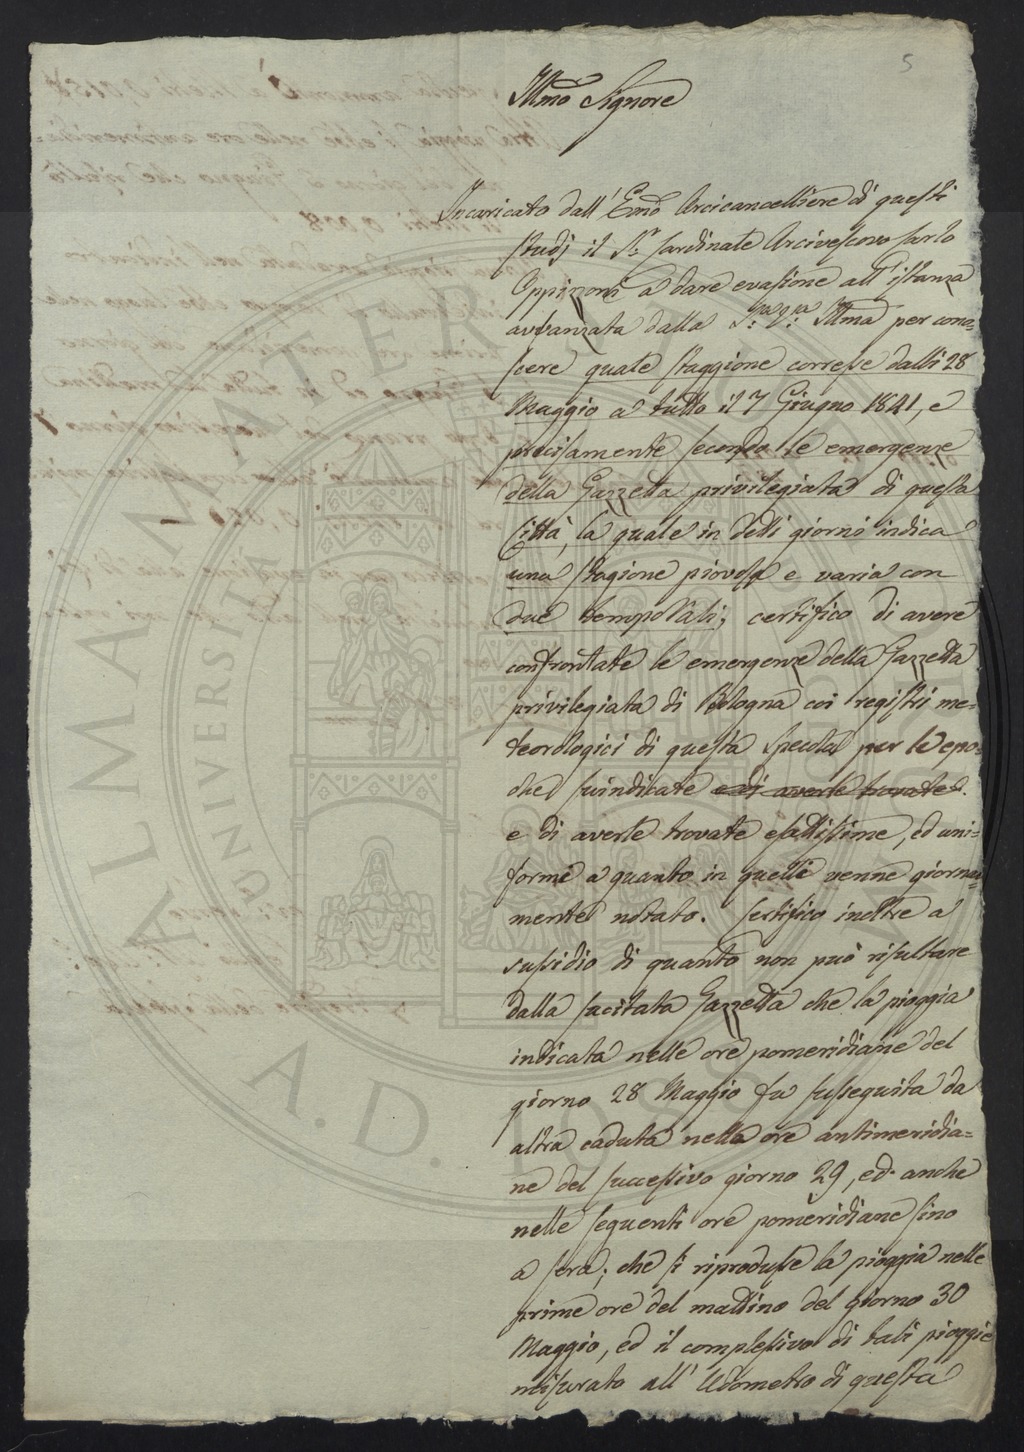 5
Illmo Signore
Incaricato dall' Emo Arcicancelliere di questi
studj il Sr. Cardinale Arcivescovo Carlo
Oppizzoni a dare evasione all' istanza
avvanzata dalla S.ria V.ra Illma per cono=
scere quale staggione corresse dalli 28
Maggio a tutto il 7 Giugno 1841, e
precisamente secondo le emergenze
della Gazzetta privilegiata di questa
Città, la quale in detti giorni indica
una stagione piovosa e varia con
due temporali; certifico di avere
confrontate le emergenze della Gazzetta
privilegiata di Bologna coi registri me=
teorologici di questa Specola per le epo=
che suindicate e di averle trovate
e di averle trovate esattissime, ed uni=
formi a quanto in quelli venne giornal=
mente notato. Certifico inoltre a
sussidio di quanto non può risultare
dalla sucitata Gazzetta che la pioggia
indicata nelle ore pomeridiane del
giorno 28 Maggio fu susseguita da
altra caduta nelle ore antimeridia=
ne del successivo giorno 29, ed anche
nelle seguenti ore pomeridiane sino
a sera; che si riprodusse la pioggia nelle
prime ore del mattino del giorno 30
Maggio, ed il complessivo di tali pioggie
misurato all' Udometro di questa
ALMA MATER STUDIORUM
UNIVERSITÀ DI BOLOGNA
A.D. 1088